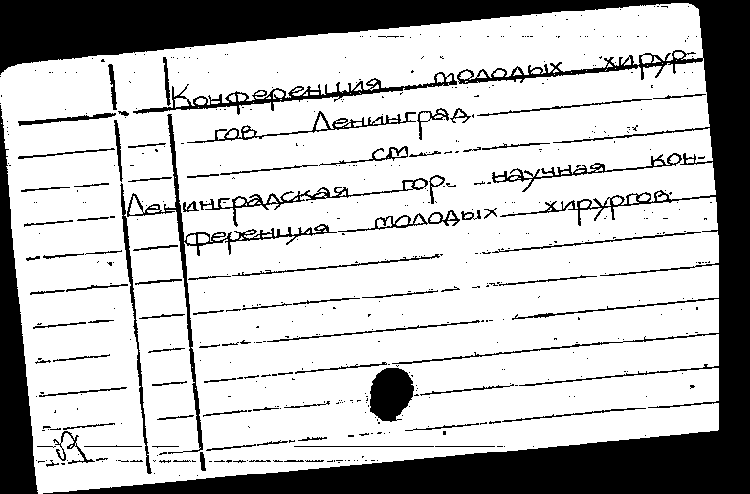 Конференция молодых хирур-
гов. Ленинград
см
Ленинградская гор. научная кон-
ференция молодых хирургов
37